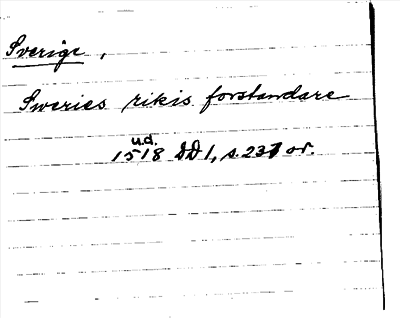 Sverige,
Sweries rikis forstandare
u.d.
1518 DD1, s. 237 or.